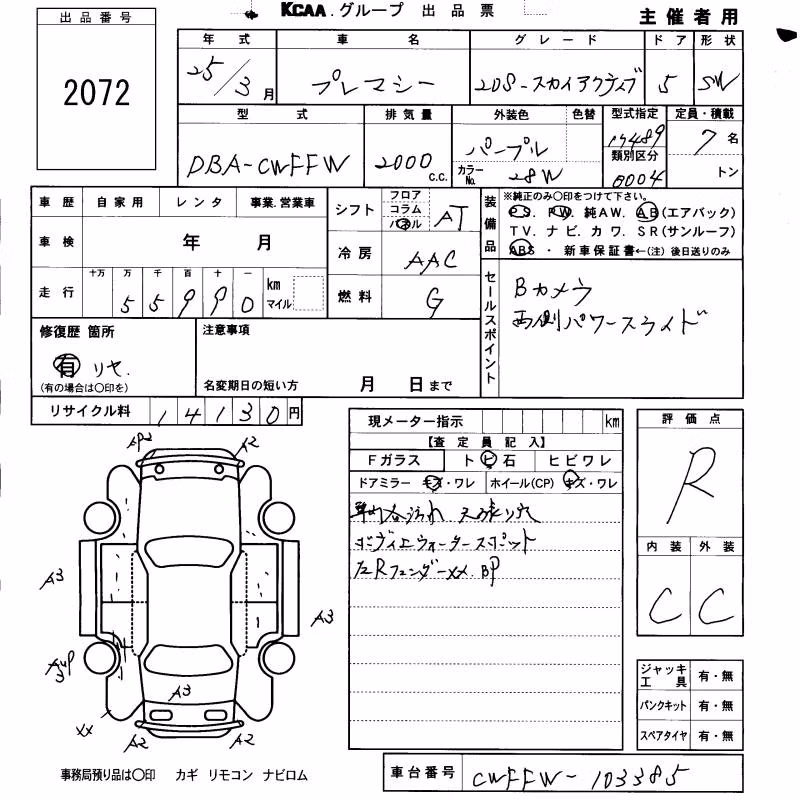 KCAA.グループ 出品票
主催者用
出品番号
2072
年式 車名 グレード ドア 形状
25/3月 プレマシー 20S-スカイアクティブ 5 SW
型式 排気量 外装色 色替 型式指定 定員・積載
DBA-CWFFW 2000c.c. パープル 17489 7名
カラーNo. 28W 類別区分 0004 トン
車歴 自家用 レンタ 事業.営業車
車検 年 月
走行 十万 万 千 百 十 一 km マイル
55990
シフト フロア コラム パネル AT
冷房 AAC
燃料 G
装備品
※純正のみ○印をつけて下さい。
PS. PW. 純AW. AB(エアバック)
TV. ナビ. カワ. SR(サンルーフ)
ABS ・ 新車保証書←(注) 後日送りのみ
セールスポイント
Bカメラ
両側パワースライド
修復歴 箇所
有 リヤ.
(有の場合は○印を)
注意事項
名変期日の短い方 月 日まで
リサイクル料 14130円
現メーター指示 km
【査定員記入】
Fガラス トビ石 ヒビワレ
ドアミラー キズ・ワレ ホイール(CP) キズ・ワレ
車内汚れ 天張り穴
ボディエウォータースポット
左Rフェンダーxx.BP
評価点
R
内装 外装
C C
ジャッキ工具 有・無
パンクキット 有・無
スペアタイヤ 有・無
AP2 A2
A3
A3
A3
xx
A2 A2
事務局預り品は○印 カギ リモコン ナビロム
車台番号 CWFFW-103385